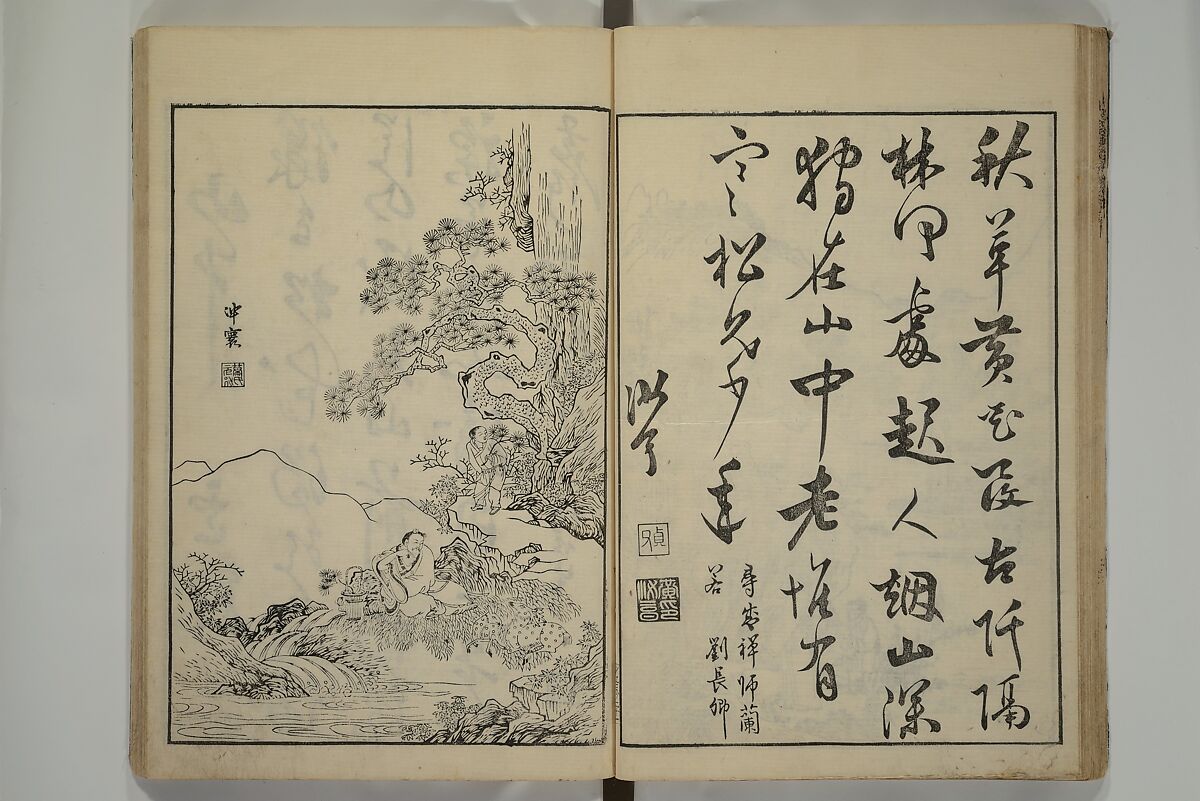 秋草黄花覆古阡隔
林何處起人烟山僧
獨在山中老惟有
寒松見少年
尋盛禪師蘭
若 劉長卿
冲寰